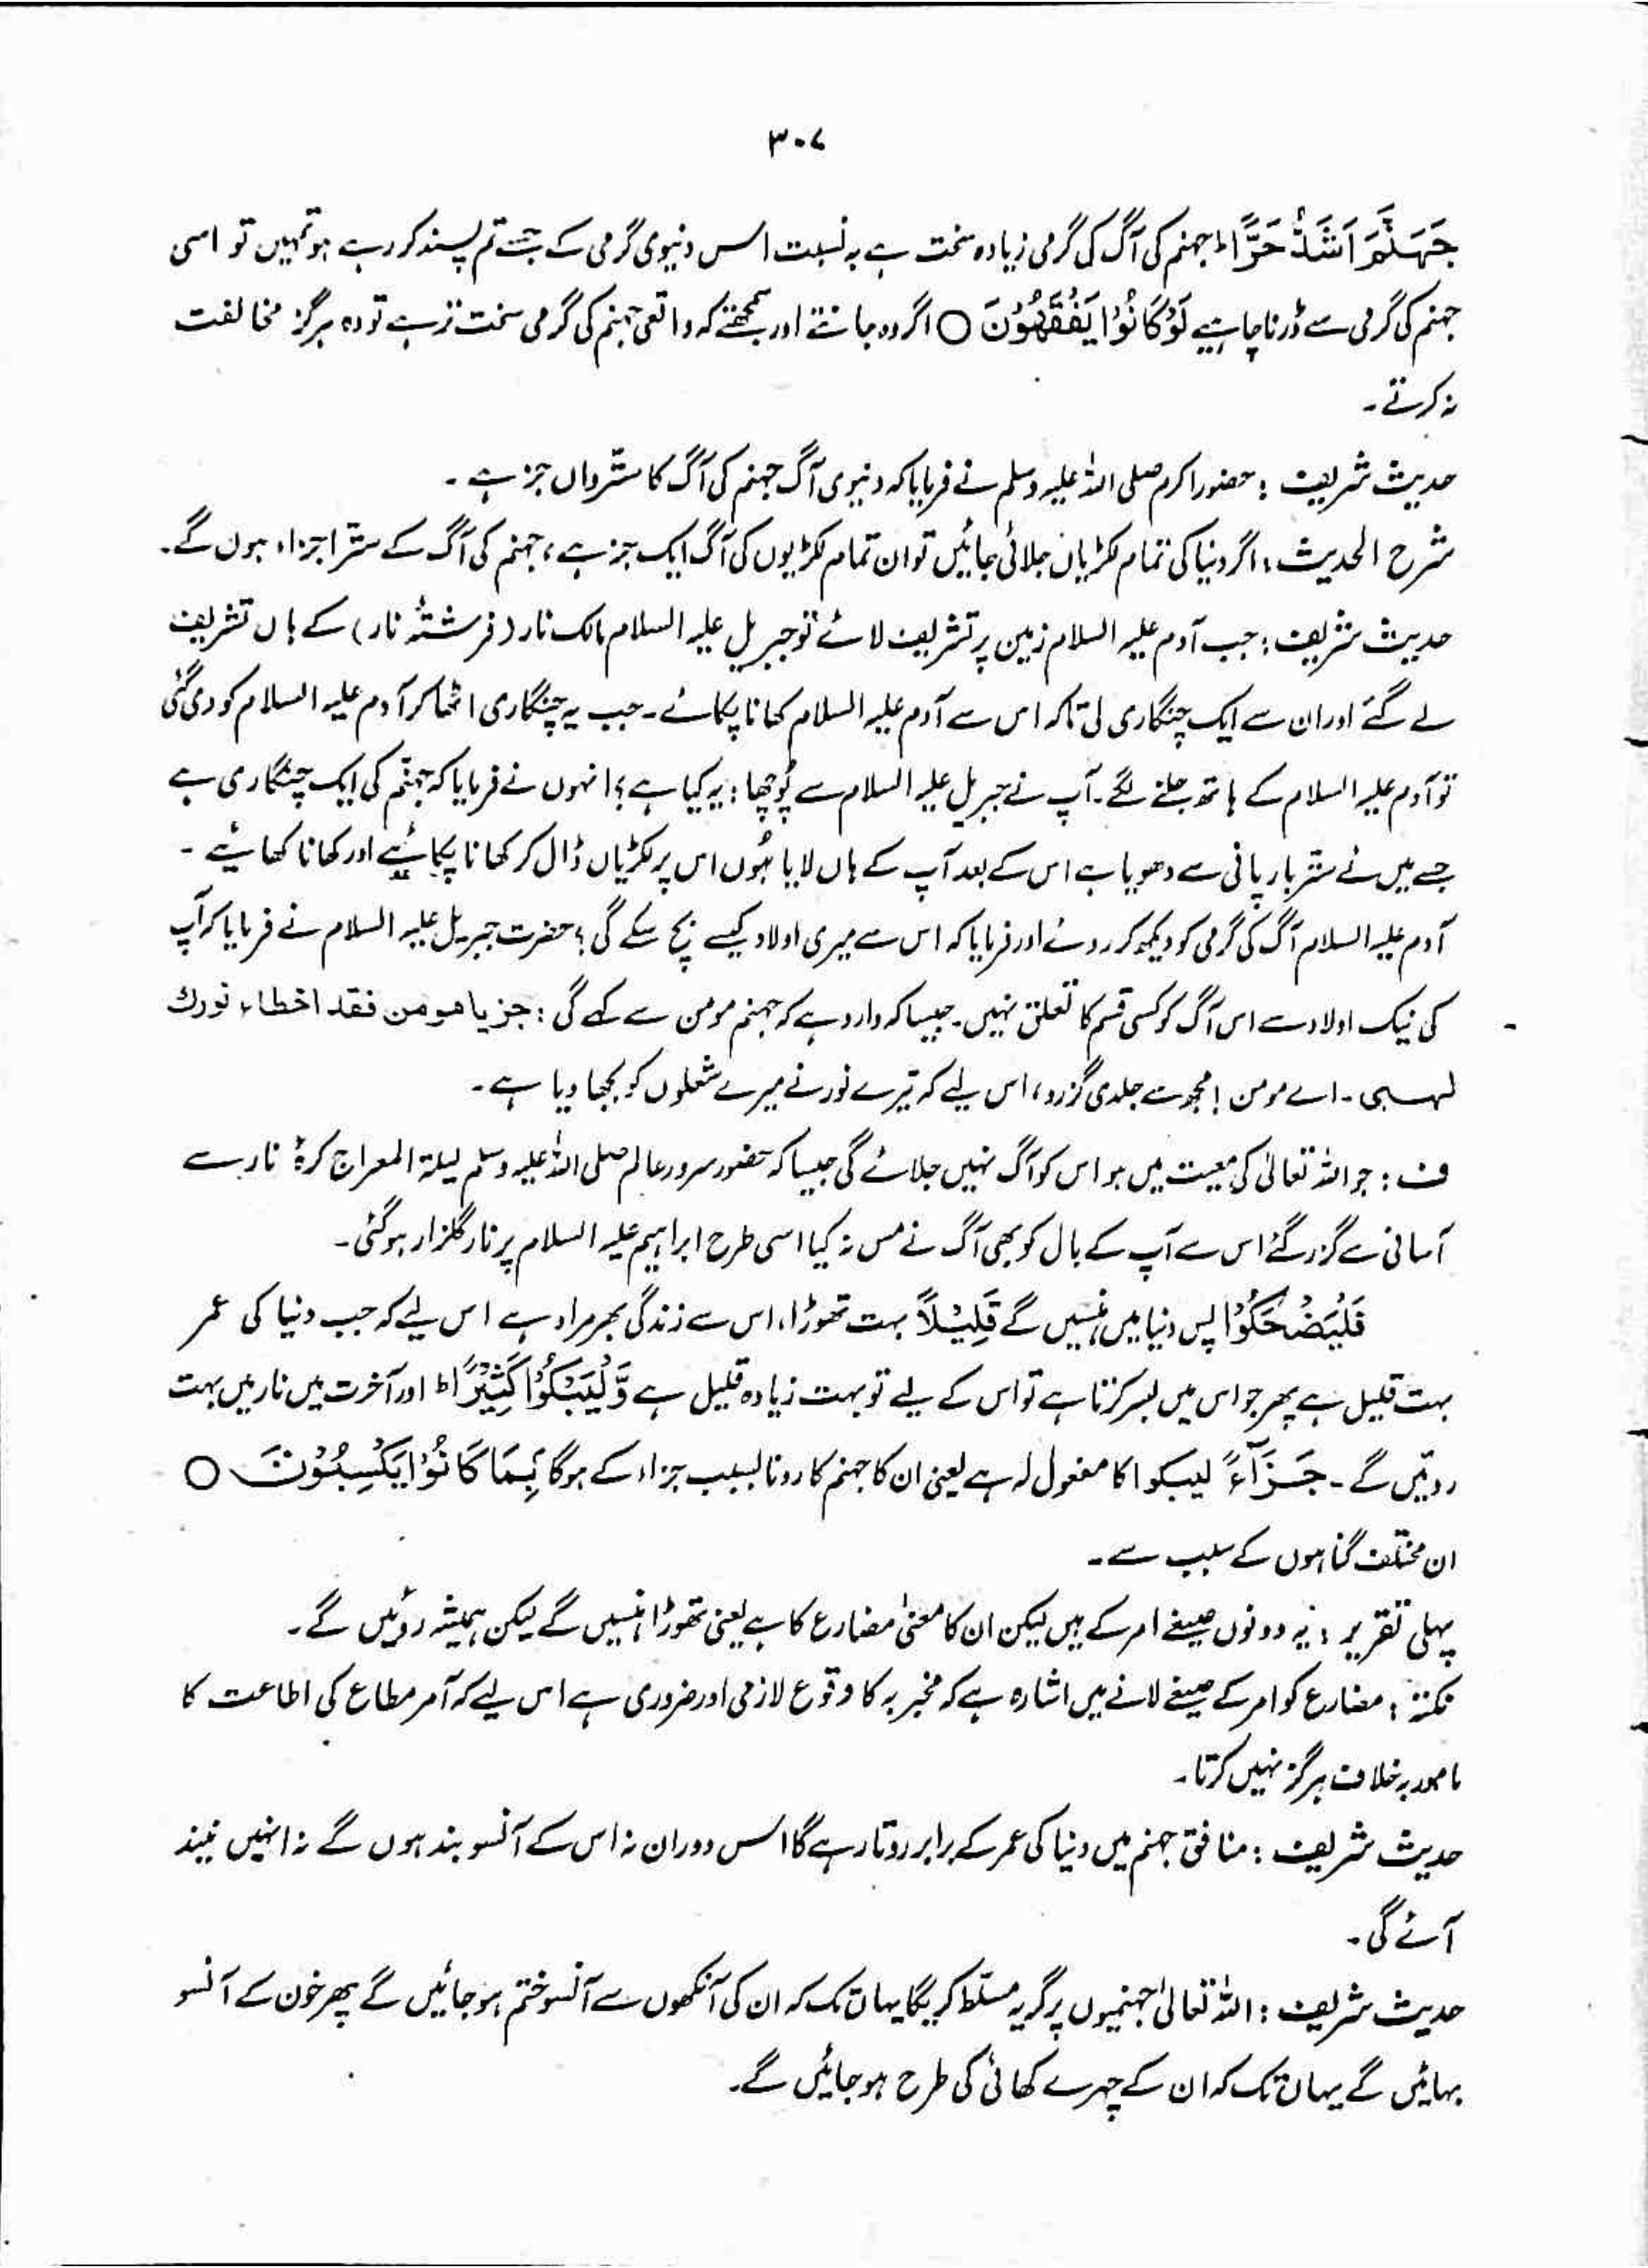 ۳۰۷
جَهَنَّمَ اَشَدُّ حَرًّا ؕ جہنم کی آگ کی گرمی زیادہ سخت ہے بہ نسبت اس دنیوی گرمی کے جسے تم پسند کر رہے ہو تمہیں تو اسی
جہنم کی گرمی سے ڈرنا چاہیے لَوْ كَانُوْا يَفْقَهُوْنَ ○ اگر وہ جانتے اور سمجھتے کہ واقعی جہنم کی گرمی سخت تر ہے تو وہ ہرگز مخالفت
نہ کرتے ۔
حدیث شریف : حضور اکرم صلی اللہ علیہ وسلم نے فرمایا کہ دنیوی آگ جہنم کی آگ کا ستّرواں جز ہے ۔
شرح الحدیث : اگر دنیا کی تمام لکڑیاں جلائی جائیں تو ان تمام لکڑیوں کی آگ ایک جز ہے ، جہنم کی آگ کے ستّر اجزاء ہوں گے ۔
حدیث شریف : جب آدم علیہ السلام زمین پر تشریف لائے تو جبریل علیہ السلام مالک نار ( فرشتۂ نار ) کے ہاں تشریف
لے گئے اور ان سے ایک چنگاری لی تاکہ اس سے آدم علیہ السلام کھانا پکائے ۔ جب یہ چنگاری اٹھا کر آدم علیہ السلام کو دی گئی
تو آدم علیہ السلام کے ہاتھ جلنے لگے ۔ آپ نے جبریل علیہ السلام سے پُوچھا : یہ کیا ہے ؟ انہوں نے فرمایا کہ جہنّم کی ایک چنگاری ہے
جسے میں نے ستّر بار پانی سے دھویا ہے اس کے بعد آپ کے ہاں لایا ہُوں اس پر لکڑیاں ڈال کر کھانا پکائیے اور کھانا کھائیے ۔
آدم علیہ السلام آگ کی گرمی کو دیکھ کر روئے اور فرمایا کہ اس سے میری اولاد کیسے بچ سکے گی ؟ حضرت جبریل علیہ السلام نے فرمایا کہ آپ
کی نیک اولاد سے اس آگ کو کسی قسم کا تعلق نہیں ۔ جیسا کہ وارد ہے کہ جہنم مومن سے کہے گی : جز یا مومن فقد اخطاء نورك
لهبی ۔ اے مومن ! مجھ سے جلدی گزرو ، اس لیے کہ تیرے نور نے میرے شعلوں کو بجھا دیا ہے ۔
ف : جو اللہ تعالیٰ کی معیت میں ہو اس کو آگ نہیں جلائے گی جیسا کہ حضور سرور عالم صلی اللہ علیہ وسلم لیلۃ المعراج کرۂ نار سے
آسانی سے گزر گئے اس سے آپ کے بال کو بھی آگ نے مس نہ کیا اسی طرح ابراہیم علیہ السلام پر نار گلزار ہو گئی ۔
فَلْيَضْحَكُوْا پس دنیا میں ہنسیں گے قَلِيْلًا بہت تھوڑا ، اس سے زندگی بھر مراد ہے اس لیے کہ جب دنیا کی عمر
بہت قلیل ہے پھر جو اس میں بسر کرتا ہے تو اس کے لیے تو بہت زیادہ قلیل ہے وَّلْيَبْكُوْا كَثِيْرًا ؕ اور آخرت میں نار میں بہت
روئیں گے ۔ جَزَآءً لیبکوا کا مفعول لہ ہے یعنی ان کا جہنم کا رونا بسبب جزاء کے ہوگا بِمَا كَانُوْا يَكْسِبُوْنَ ○
ان مختلف گناہوں کے سبب سے ۔
پہلی تقریر : یہ دونوں صیغے امر کے ہیں لیکن ان کا معنیٰ مضارع کا ہے یعنی تھوڑا ہنسیں گے لیکن ہمیشہ روئیں گے ۔
نکتہ : مضارع کو امر کے صیغے لانے میں اشارہ ہے کہ مخبر بہ کا وقوع لازمی اور ضروری ہے اس لیے کہ آمر مطاع کی اطاعت کا
مامور بہ خلاف ہرگز نہیں کرتا ۔
حدیث شریف : منافق جہنم میں دنیا کی عمر کے برابر روتا رہے گا اس دوران نہ اس کے آنسو بند ہوں گے نہ انہیں نیند
آئے گی ۔
حدیث شریف : اللہ تعالیٰ جہنمیوں پر گریہ مسلّط کریگا یہاں تک کہ ان کی آنکھوں سے آنسو ختم ہو جائیں گے پھر خون کے آنسو
بہائیں گے یہاں تک کہ ان کے چہرے کھائی کی طرح ہو جائیں گے ۔